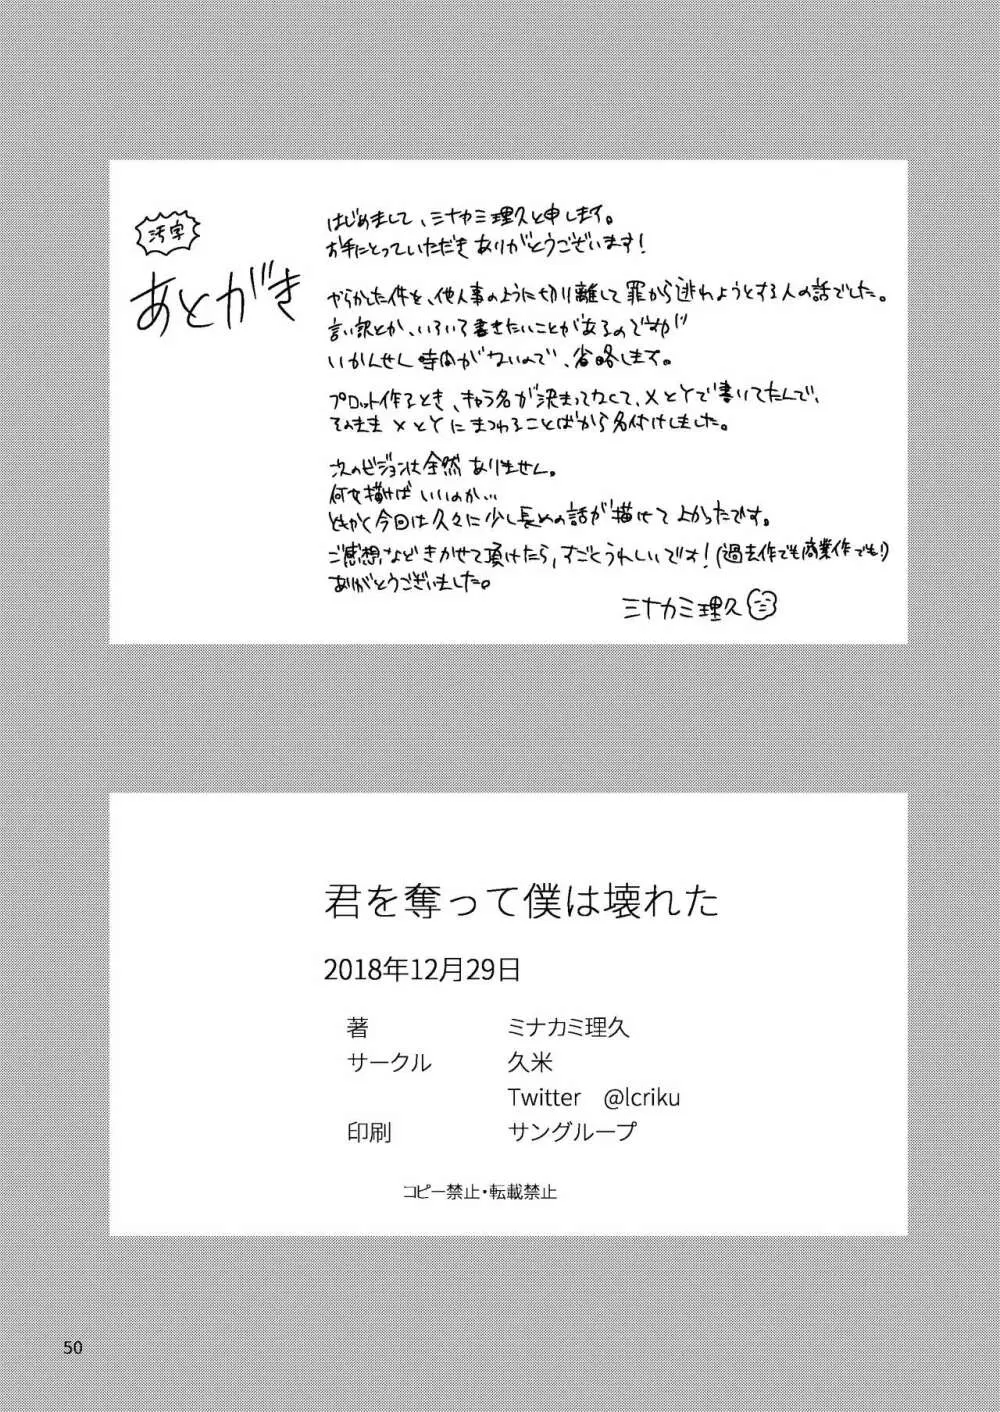 汚字
あとがき
はじめまして、ミナカミ理久と申します。
お手にとっていただきありがとうございます！
やらかした件を、他人事のように切り離して罪から逃れようとする人の話でした。
言い訳とか、いろいろ書きたいことがあるのですが
いかんせん時間がないので、省略します。
プロット作るとき、キャラ名が決まってなくて、XとYで書いてたんで、
そのままXとYにまつわることばから名付けしました。
次のビジョンは全然ありません。
何を描けばいいのか…
ともかく今回は久々に少し長めの話が描けてよかったです。
ご感想などきかせて頂けたら、すごくうれしいです！(過去作でも商業作でも!)
ありがとうございました。
ミナカミ理久
君を奪って僕は壊れた
2018年12月29日
著 ミナカミ理久
サークル 久米
Twitter @lcriku
印刷 サングループ
コピー禁止・転載禁止
50